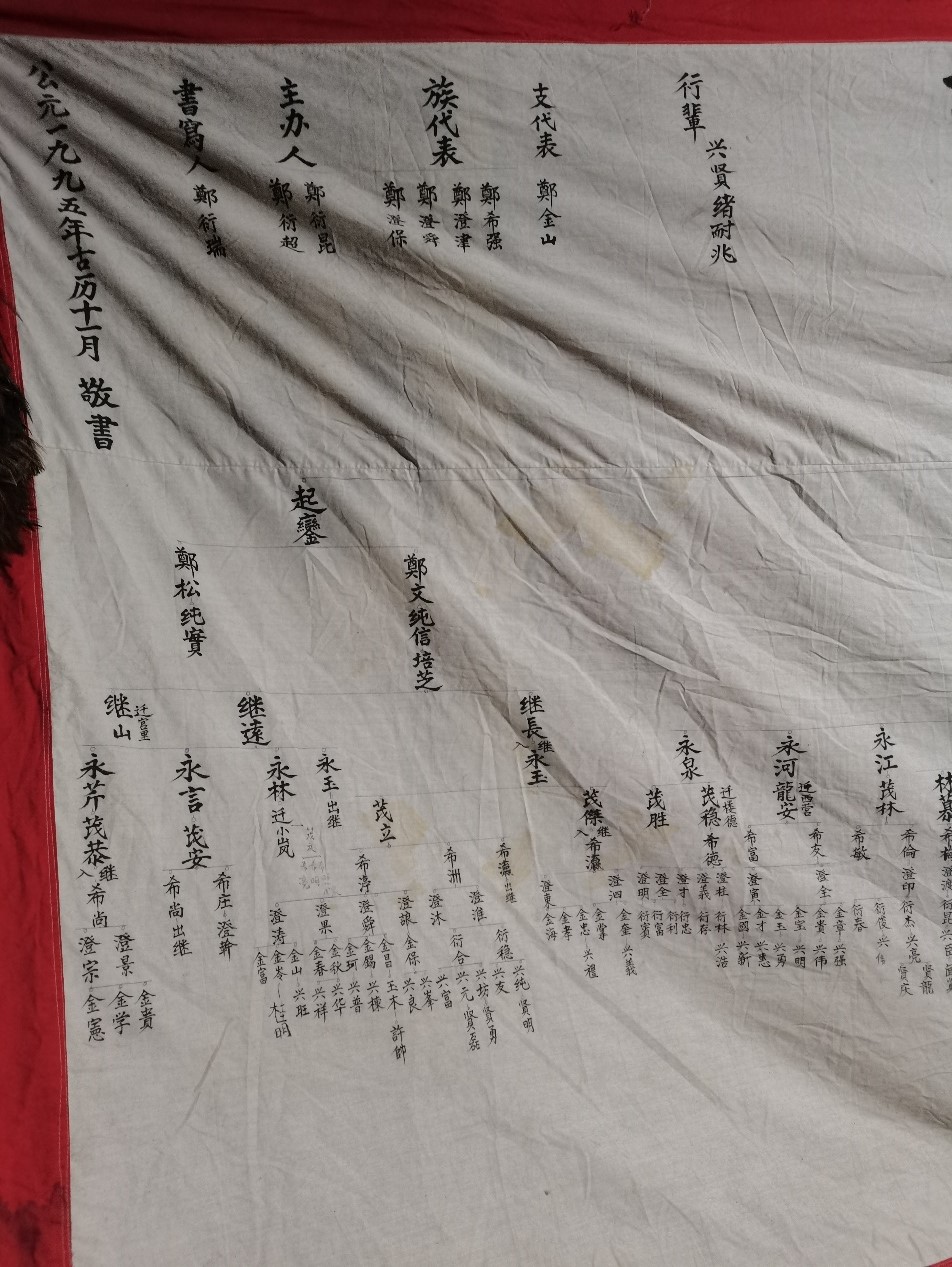 行輩
兴贤绪耐兆
支代表
鄭金山
族代表
鄭希强
鄭澄津
鄭澄舜
鄭澄保
主办人
鄭衍昆
鄭衍超
書寫人
鄭衍瑞
公元一九九五年古历十一月 敬書
起鑾
鄭文纯信培芝
鄭松纯實
继長
继遠
继山
迁宫里
永江 茂林
永河 龍安
迁西营
永泉
入继永玉
永玉 出继
永林 迁小岚
永言 茂安
永芹 茂恭
茂穏 希德
茂胜
茂傑
入继希瀛
茂立
希倫 澄印 衍杰 兴亮
贤龍
贤庆
希敏
衍俊 兴伟
衍春
希友 澄全
金章 兴强
金贵 兴伟
金宝 兴明
希富 澄寅
金玉 兴勇
金才 兴惠
金國 兴新
澄杜 衍林 兴浩
澄義 衍存
澄才 衍忠
澄全 衍利
衍富
澄明 衍賓
澄泗 金奎 兴義
澄東
金掌 兴禮
金忠
金孝
金海
希瀛 出继
希洲
澄淮
衍稳
兴纯 贤明
兴友
衍合
兴坊 贤勇
兴元 贤磊
澄沐
兴富
兴峯
希淳
澄詪
金保 兴良
金昌 玉木 許帥
澄舜
金錫 兴棟
金珂 兴普
澄果
金秋 兴华
金春 兴祥
澄涛
金山 兴旺
金岺
金富
希庄
希尚 出继
入继希尚
澄景
金贵
金学
澄宗 金憲